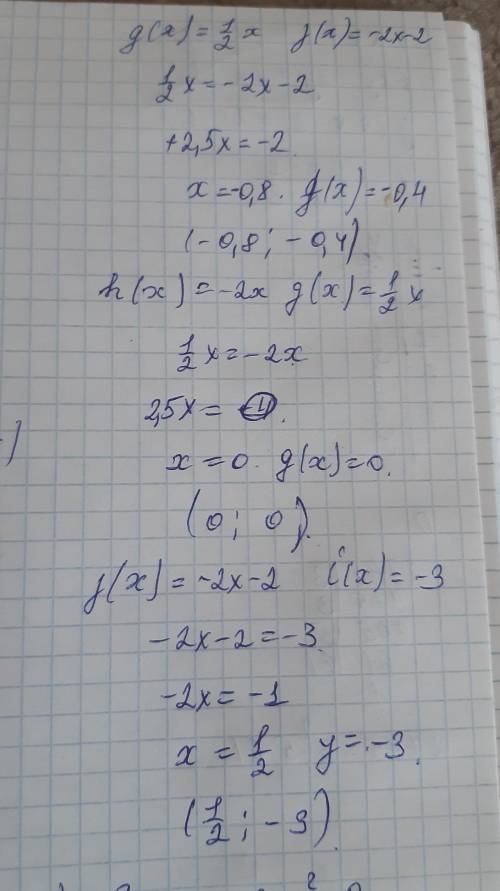 g(x) = 1/2 x j(x) = -2x-2
1/2 x = -2x-2
+2,5x = -2
x = -0,8. g(x) = -0,4
(-0,8; -0,4)
h(x) = -2x g(x) = 1/2 x
1/2 x = -2x
2,5x =
x = 0. g(x) = 0.
(0; 0).
j(x) = -2x-2 i(x) = -3
-2x-2 = -3
-2x = -1
x = 1/2 y = -3.
(1/2; -3)